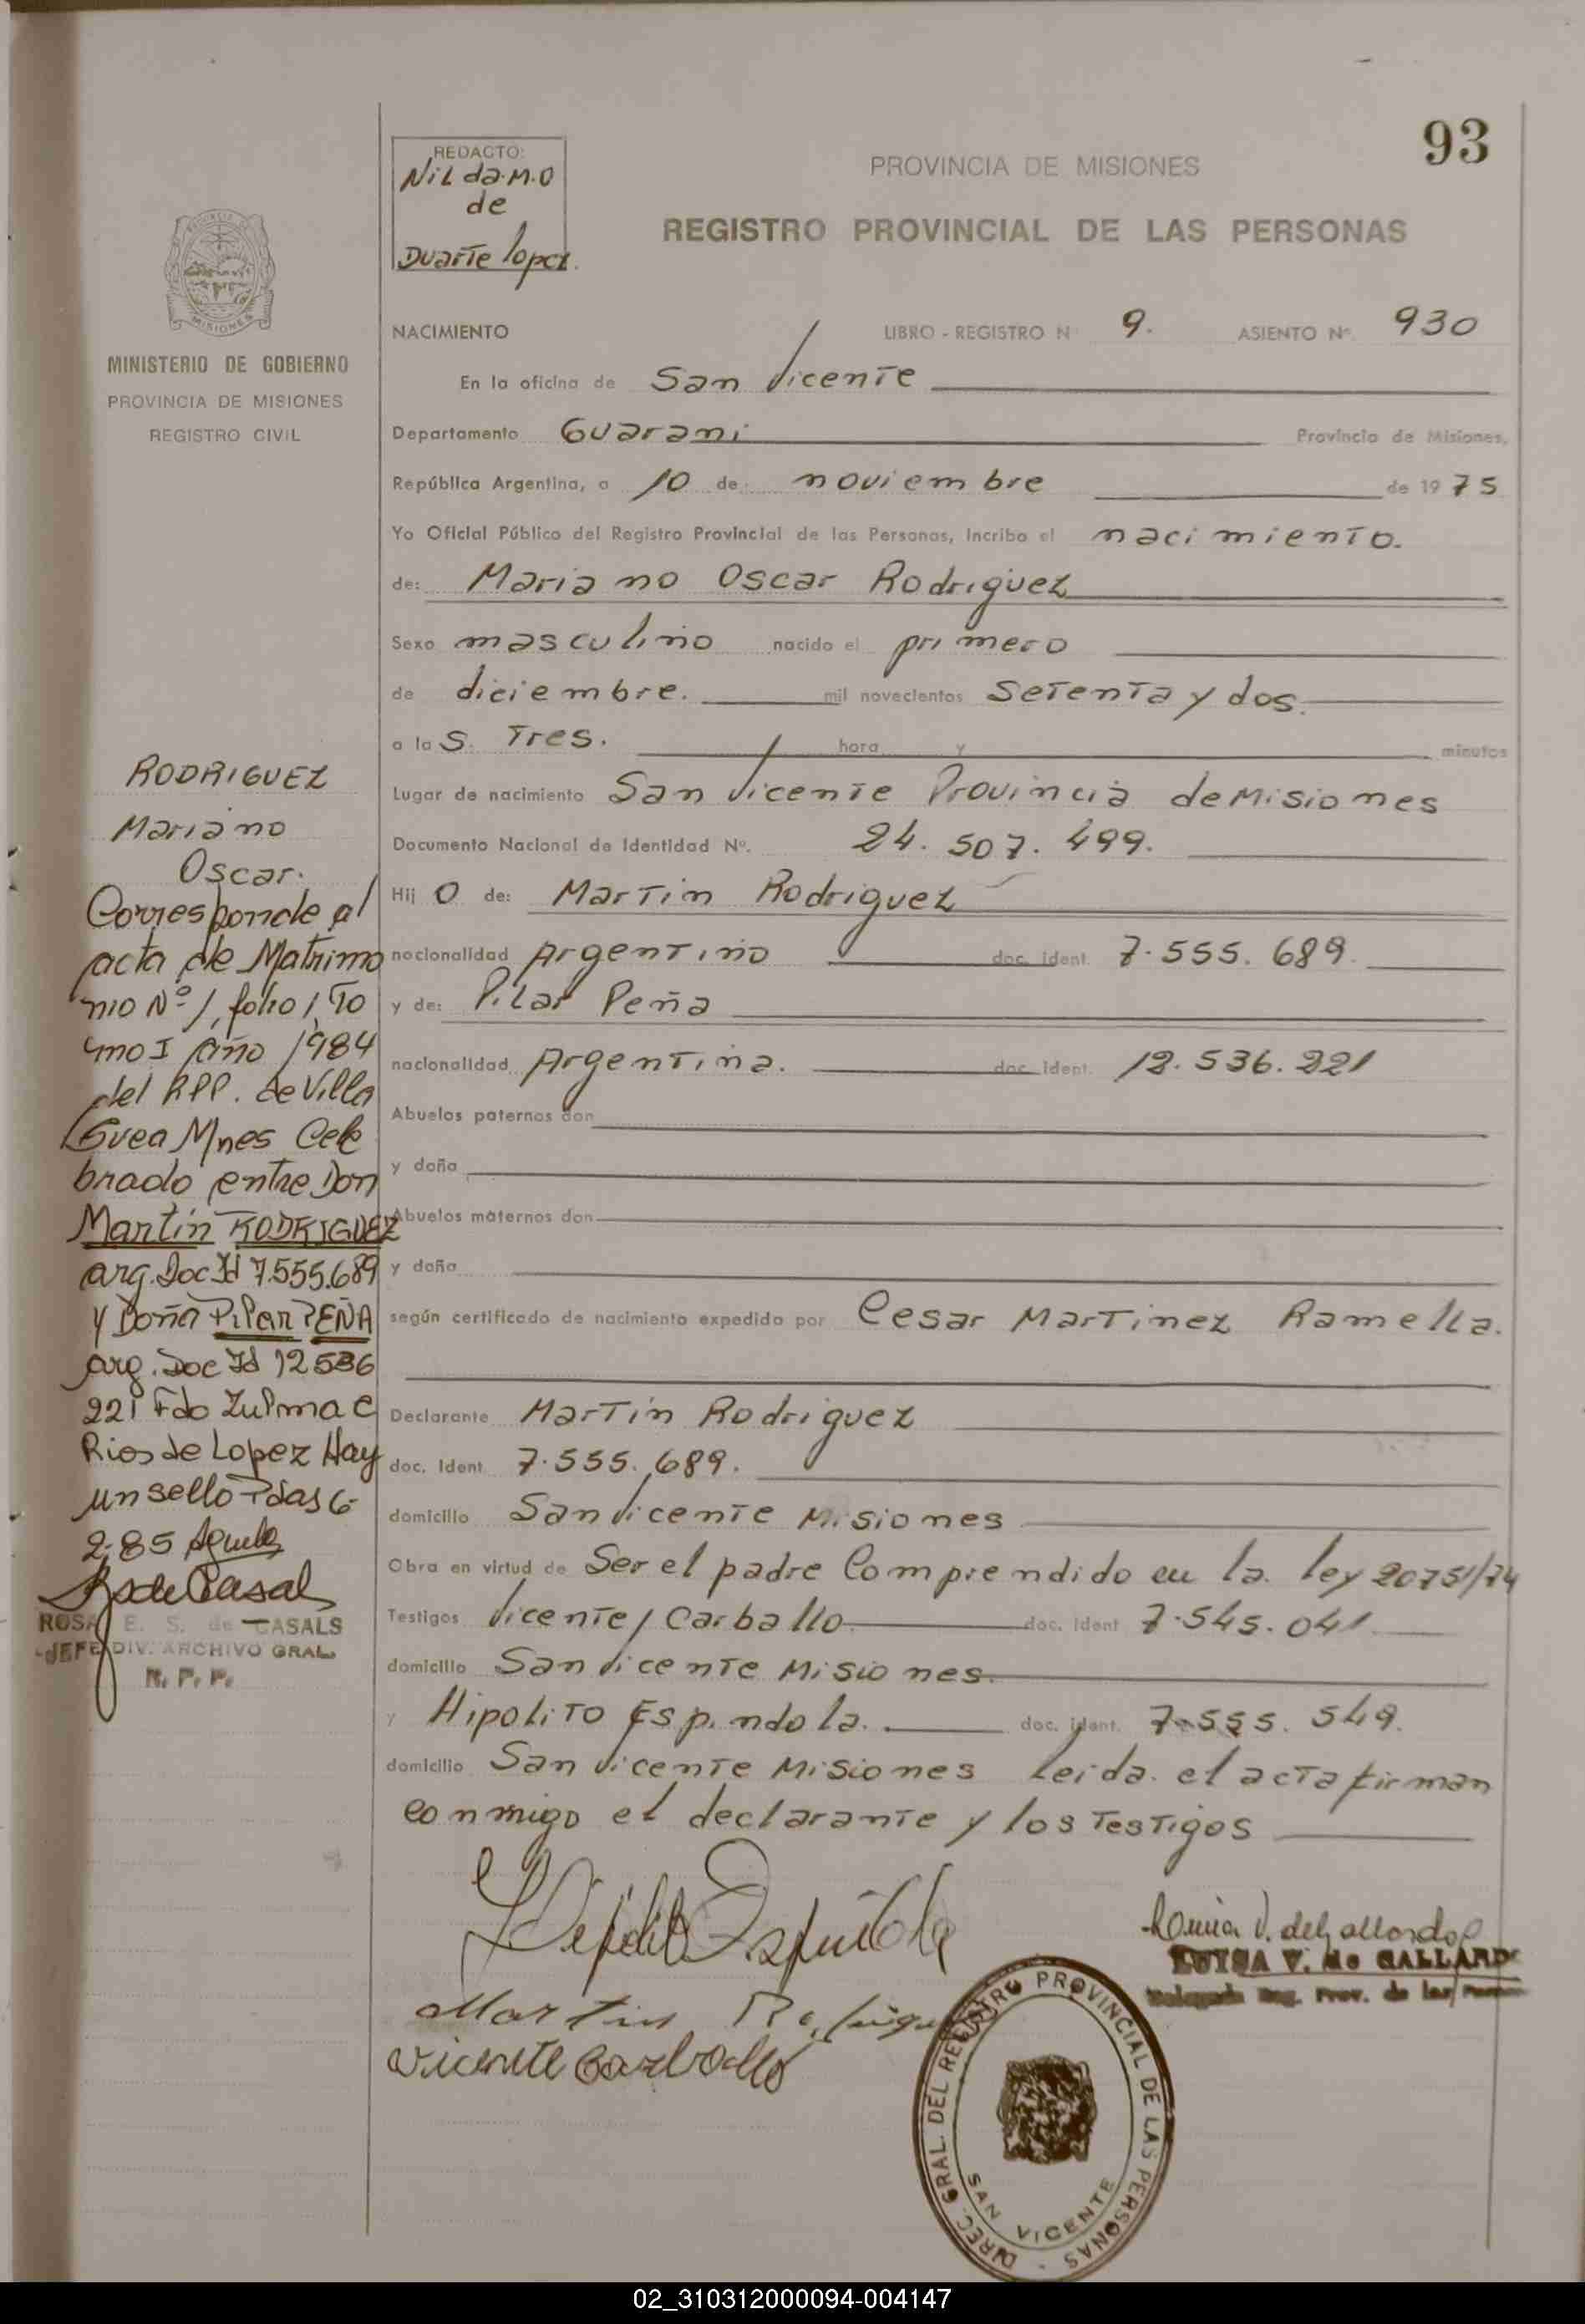 93
REDACTO:
Nilda.M.O
de
Duarte lopez.
PROVINCIA DE MISIONES
REGISTRO PROVINCIAL DE LAS PERSONAS
MISIONES
MINISTERIO DE GOBIERNO
PROVINCIA DE MISIONES
REGISTRO CIVIL
NACIMIENTO LIBRO - REGISTRO N 9. ASIENTO Nº. 930
En la oficina de San Vicente
Departamento Guarani Provincia de Misiones,
República Argentina, a 10 de noviembre de 1975
Yo Oficial Público del Registro Provincial de las Personas, Incribo el nacimiento.
de: Mariano Oscar Rodriguez
Sexo masculino nacido el primero
de diciembre. mil novecientos setenta y dos.
a las. Tres. hora y minutos
Lugar de nacimiento San Vicente Provincia de Misiones
Documento Nacional de Identidad Nº. 24. 507. 499.
Hij o de: Martin Rodriguez
nacionalidad Argentino doc. ident. 7.555. 689.
y de: Pilar Peña
nacionalidad Argentina. doc. ident. 12. 536. 221
Abuelos paternos don
y doña
Abuelos maternos don
y doña
según certificado de nacimiento expedido por Cesar Martinez Ramella.
Declarante Martin Rodriguez
doc. Ident 7.555. 689.
domicilio San Vicente Misiones
Obra en virtud de Ser el padre Comprendido en la. ley 20751/74
Testigos Vicente Carballo doc. Ident 7.545. 041.
domicilio San Vicente Misiones.
y Hipolito Espindola. doc. ident. 7.555. 549.
domicilio San Vicente Misiones Leida. el acta firman
conmigo el declarante y los Testigos
RODRIGUEZ
Mariano
Oscar.
Corresponde al
acta de Matrimo
nio Nº 1, folio 1, To
mo I año 1984
del RPP. de Villa
Mnes Cele
brado entre Don
Martin RODRIGUEZ
arg. Doc Id 7.555.689
y Doña Pilar PEÑA
arg. Doc Id 12 536
221 Fdo Zulma C
Rios de Lopez Hay
un sello Pdas 6-
2-85
ROSA E. S. de CASALS
JEFE DIV. ARCHIVO GRAL.
R. P. P.
Hipolito Espindola
Martin Rodriguez
Vicente Carballo
Luisa V. de Gallardo
LUISA V. de GALLARDO
Delegada Reg. Prov. de las
DIREC. GRAL. DEL REGISTRO PROVINCIAL DE LAS PERSONAS -
SAN VICENTE
02_310312000094-004147